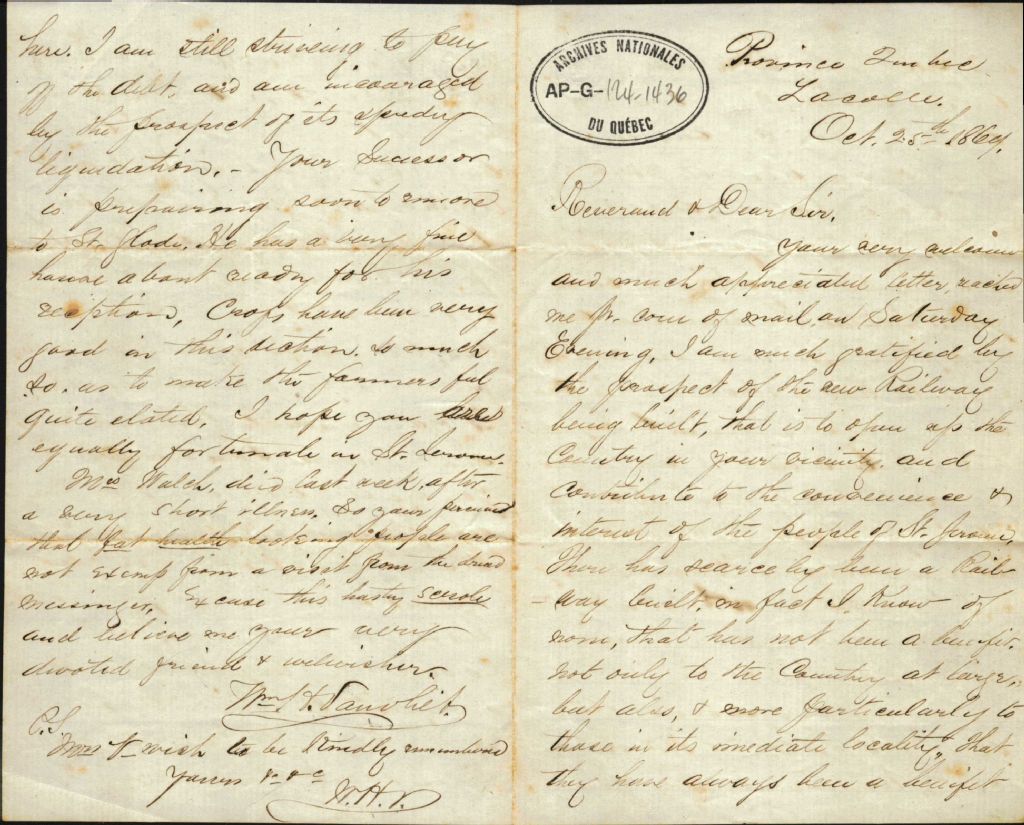 Province Quebec
Lacolle.
Oct. 25th 1869.
ARCHIVES NATIONALES
AP-G-124-1436
DU QUÉBEC
Reverand & Dear Sir,
Your very welcom
and much appreciated letter, reached
me pr. cour of mail, on Saturday
Evening, I am much gratified by
the prospect of the new Railway
being built, that is to open up the
Country in your vicinity, and
contribute to the convenience &
interest of the people of St. Jerome,
There has scarcely been a Rail-
way built, in fact I know of
none, that has not been a benefit,
not only to the Country at large,
but also, & more particularly to
those in its imediate locality, that
they have always been a benefit
here. I am still striveing to pay
of the debt, and am incouraged
by the prospect of its speedy
liquidation, - Your Successor
is prepairing soon to remove
to St. He has a very fine
house about ready for his
reception, Crops have been very
good in this section, so much
so, as to make the farmers feel
quite elated, I hope you are
equally fortunate in St. Jerome.
Mrs Walch, died last week, after
a very short illness, So your perceive
that fat health looking people are
not exemp from a visit from the dread
messinger, Excuse this hasty scrole
and believe me your very
devoted friend & welwisher.
Wm H. Vanvliet.
P.S.
Mrs V wish to be kindly remembered
Yours &c &c
W.H.V.